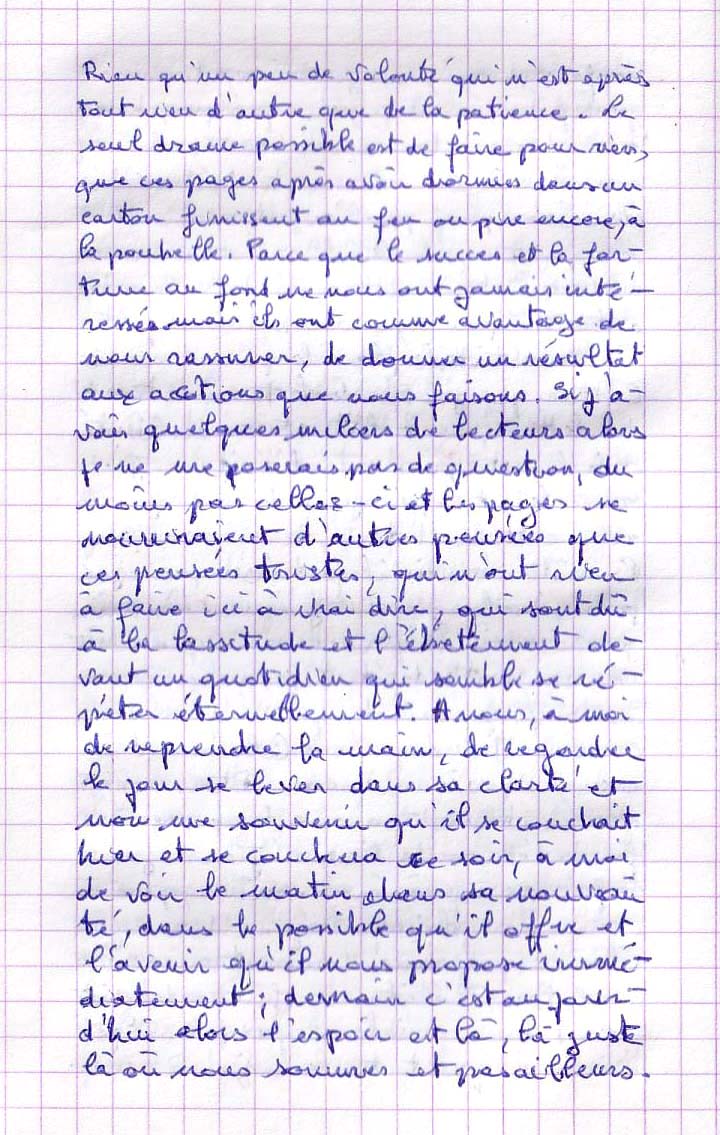 Rien qu'un peu de volonté qui n'est après
tout rien d'autre que de la patience. Le
seul drame possible est de faire pour rien,
que ces pages après avoir dormies dans un
carton finissent au feu ou pire encore, à
la poubelle. Parce que le succes et la for-
tune au fond ne nous ont jamais inté-
ressés mais ils ont comme avantage de
nous rassurer, de donner un résultat
aux actions que nous faisons. Si j'a-
vais quelques milliers de lecteurs alors
je ne me poserais pas de question, du
moins pas celles-ci et les pages se
nourriraient d'autres pensées que
ces pensées tristes, qui n'ont rien
à faire ici à vrai dire, qui sont dû
à la lassitude et l'ébêtement de-
vant un quotidien qui semble se ré-
péter éternellement. A nous, à moi
de reprendre la main, de regarder
le jour se lever dans sa clarté et
non me souvenir qu'il se couchait
hier et se couchera ce soir, à moi
de voir le matin dans sa nouveau
té, dans le possible qu'il offre et
l'avenir qu'il nous propose immé-
diatement; demain c'est aujour-
d'hui alors l'espoir est là, là juste
là où nous sommes et pas ailleurs.